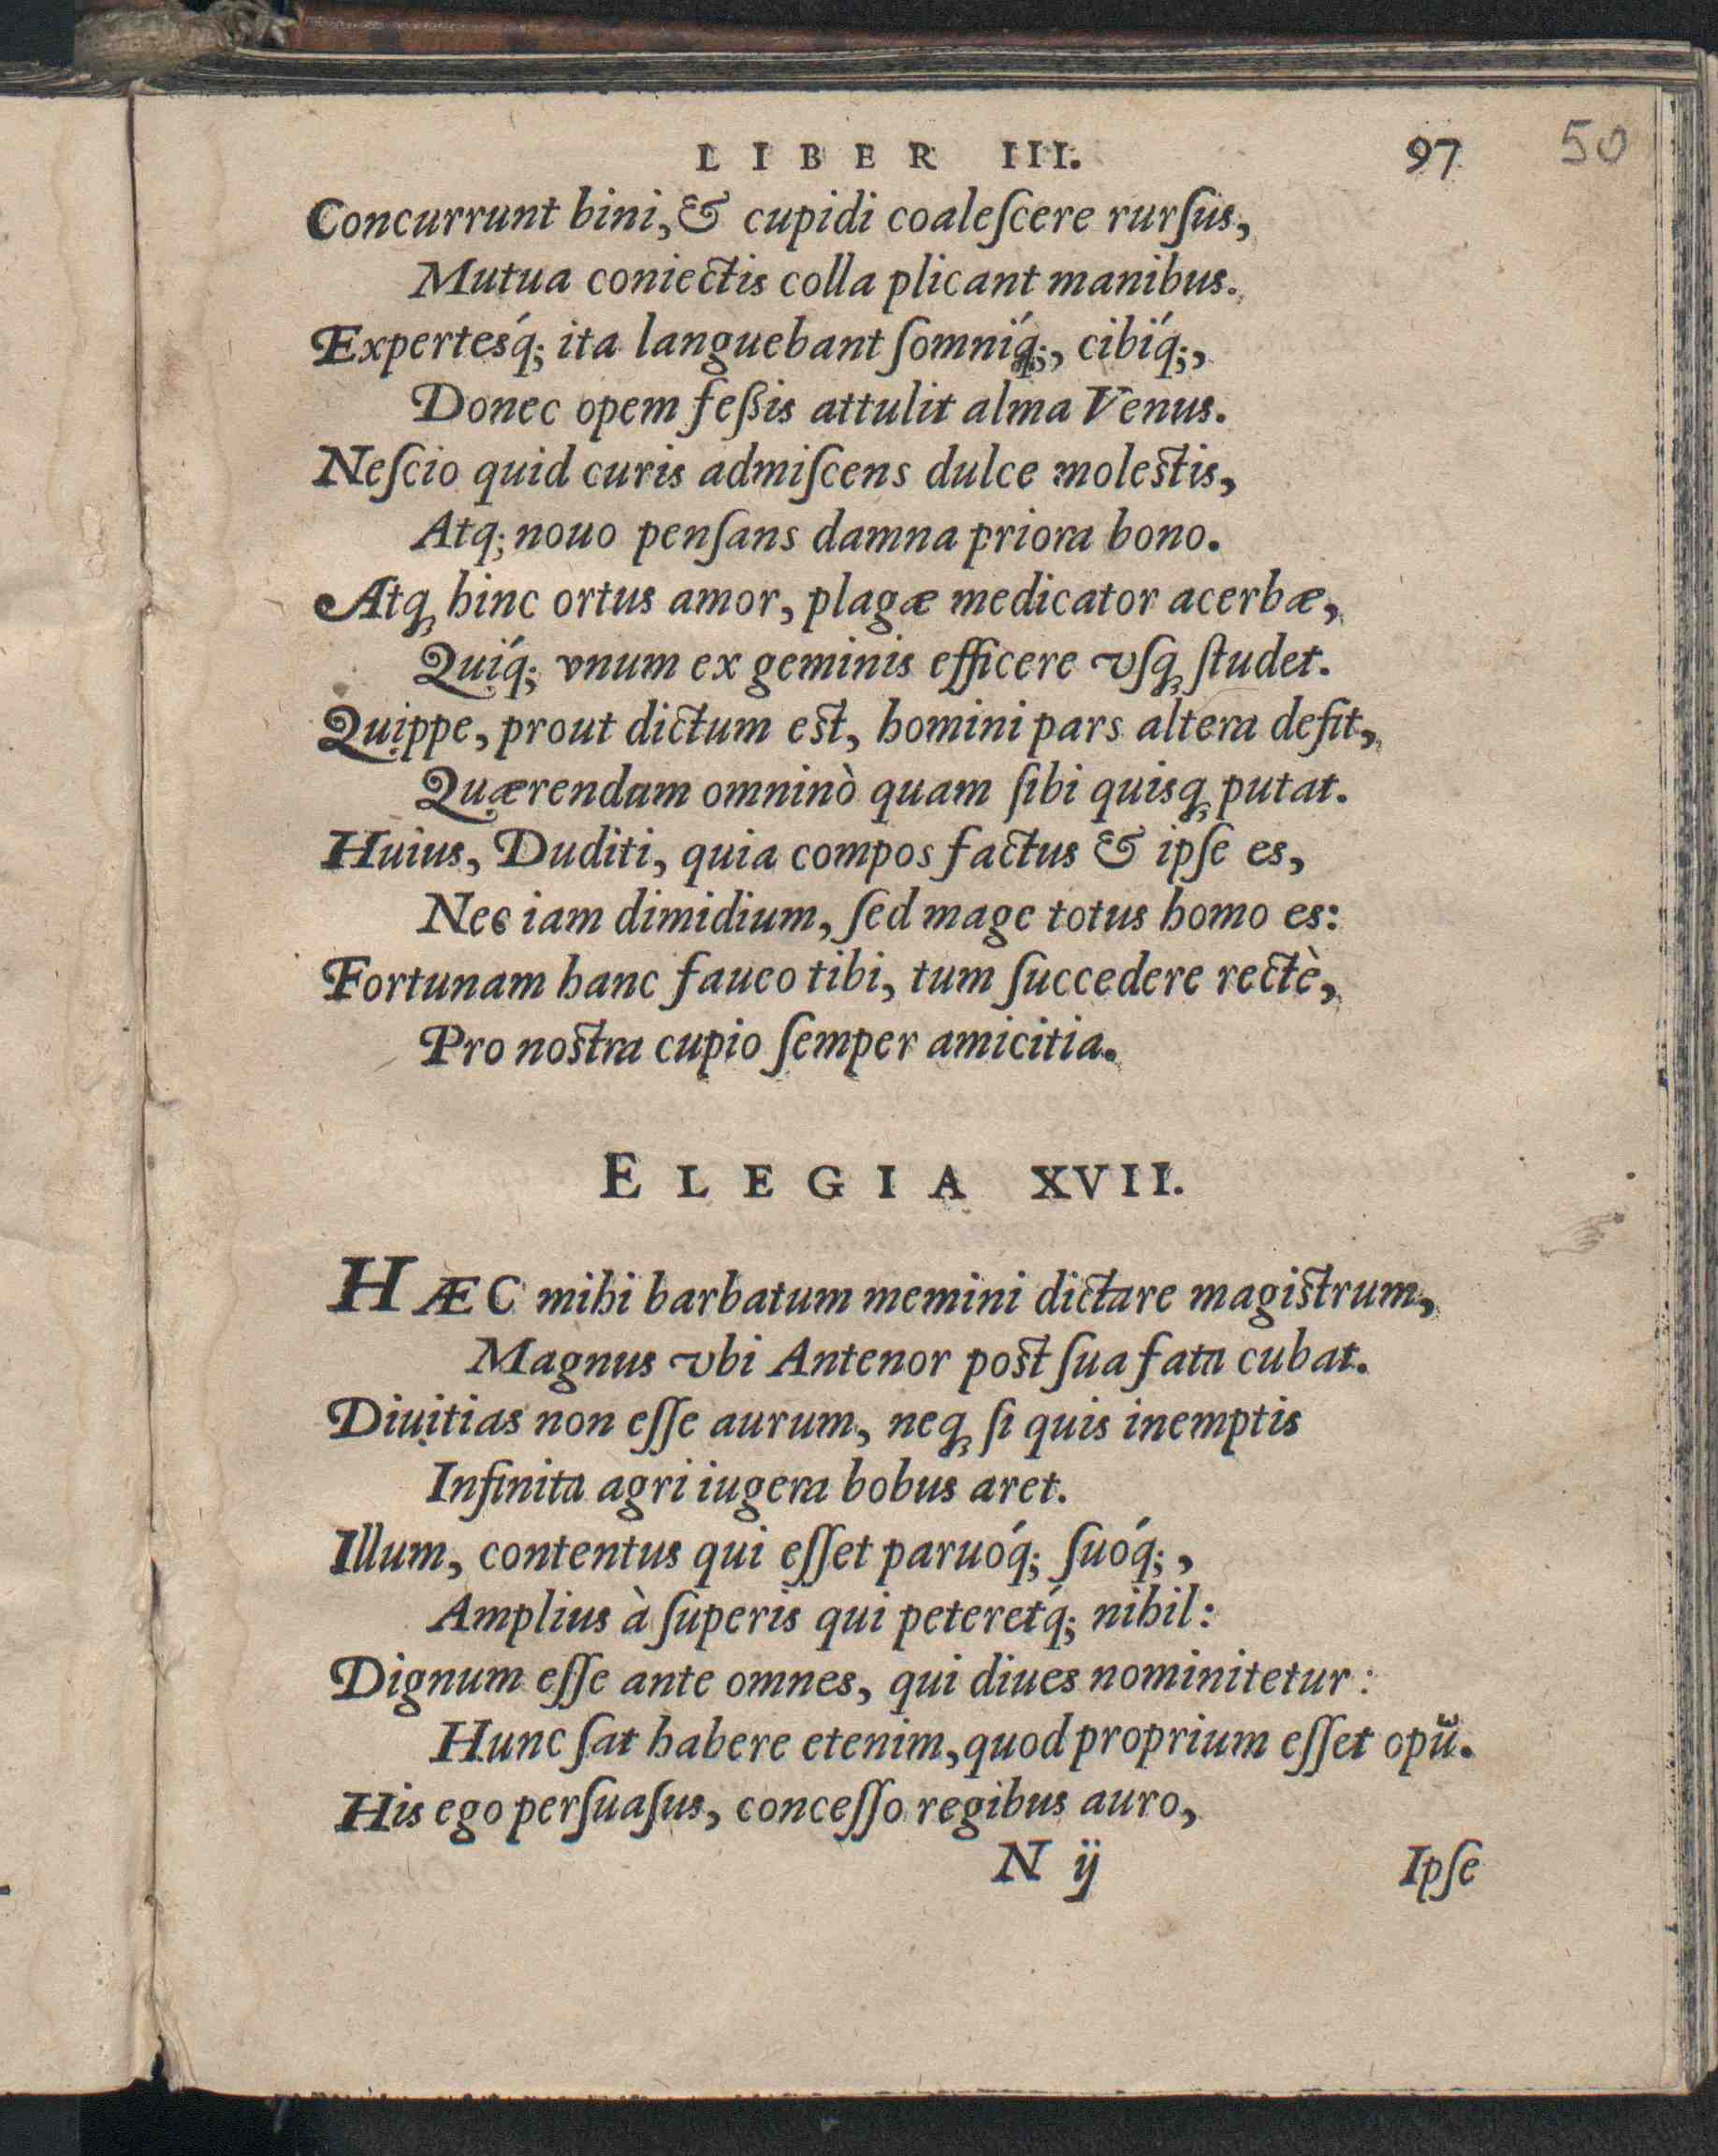 LIBER III. 97 50
Concurrunt bini, & cupidi coaleſcere rurſus,
Mutua coniectis colla plicant manibus.
Expertesq́; ita languebant ſomniq́;, cibiq́;,
Donec opem feßis attulit alma Venus.
Neſcio quid curis admiſcens dulce molestis,
Atq; nouo penſans damna priora bono.
Atq, hinc ortus amor, plagæ medicator acerbæ,
Quiq́; vnum ex geminis efficere vſq, ſtudet.
Quippe, prout dictum est, homini pars altera defit,
Quærendam omninò quam ſibi quisq, putat.
Huius, Duditi, quia compos factus & ipſe es,
Nec iam dimidium, ſed mage totus homo es:
Fortunam hanc faueo tibi, tum ſuccedere rectè,
Pro nostra cupio ſemper amicitia.
ELEGIA XVII.
HÆC mihi barbatum memini dictare magistrum,
Magnus vbi Antenor post ſua fata cubat.
Diuitias non eſſe aurum, neq, ſi quis inemptis
Infinita agri iugera bobus aret.
Illum, contentus qui eſſet paruoq́; ſuoq́;,
Amplius à ſuperis qui peteretq́; nihil:
Dignum eſſe ante omnes, qui diues nominitetur:
Hunc ſat habere etenim, quod proprium eſſet opũ.
His ego perſuaſus, conceſſo regibus auro,
N ij Ipſe